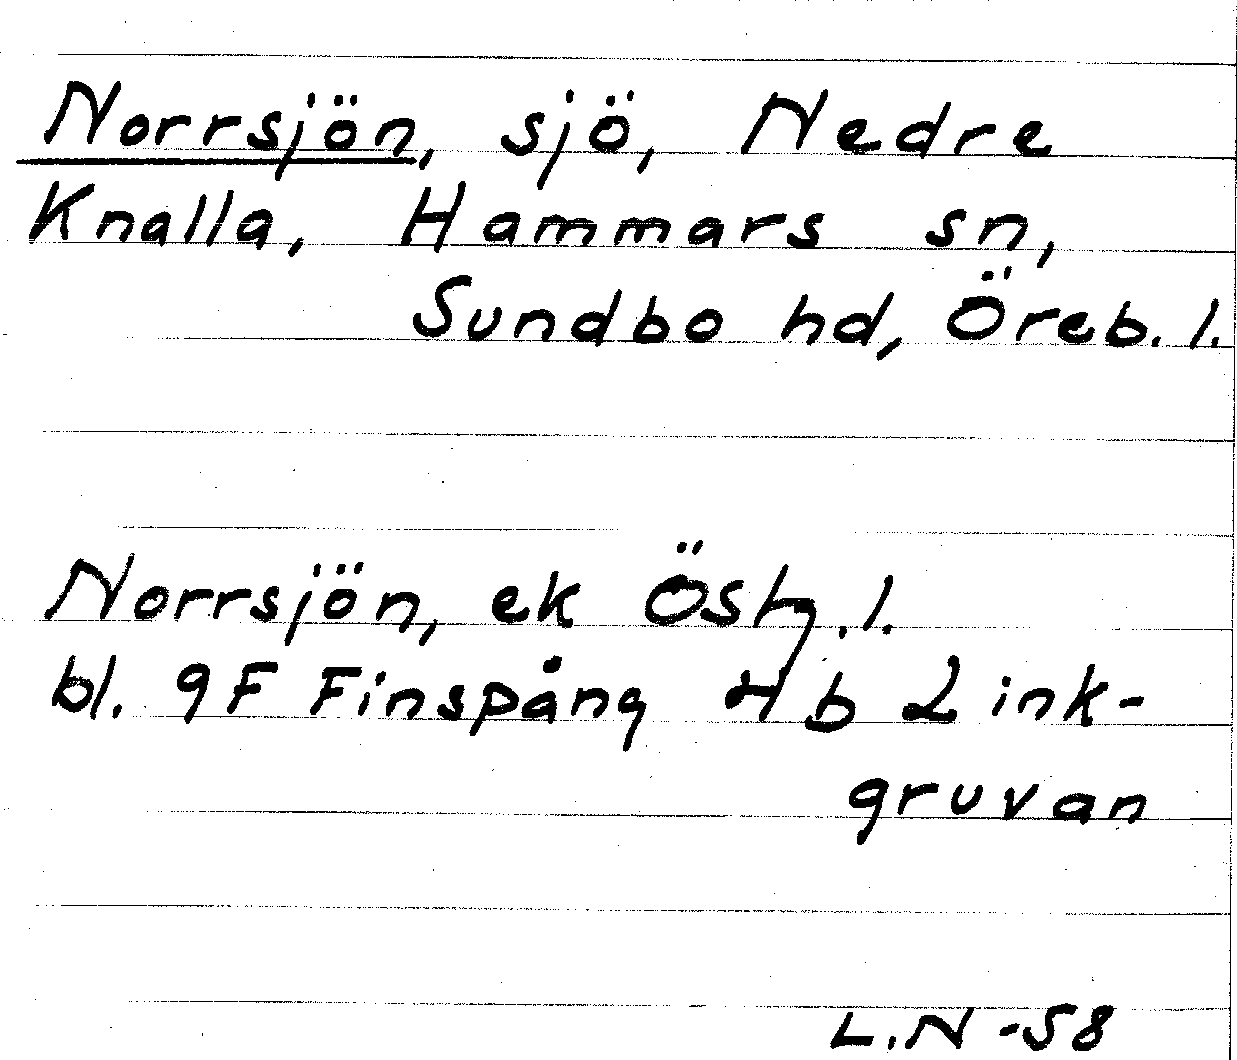 Norrsjön, sjö, Nedre
Knalla, Hammars sn,
Sundbo hd, Öreb. l.
Norrsjön, ek Östg. l.
bl. 9F Finspång 4 b Zink-
gruvan
L.N -58